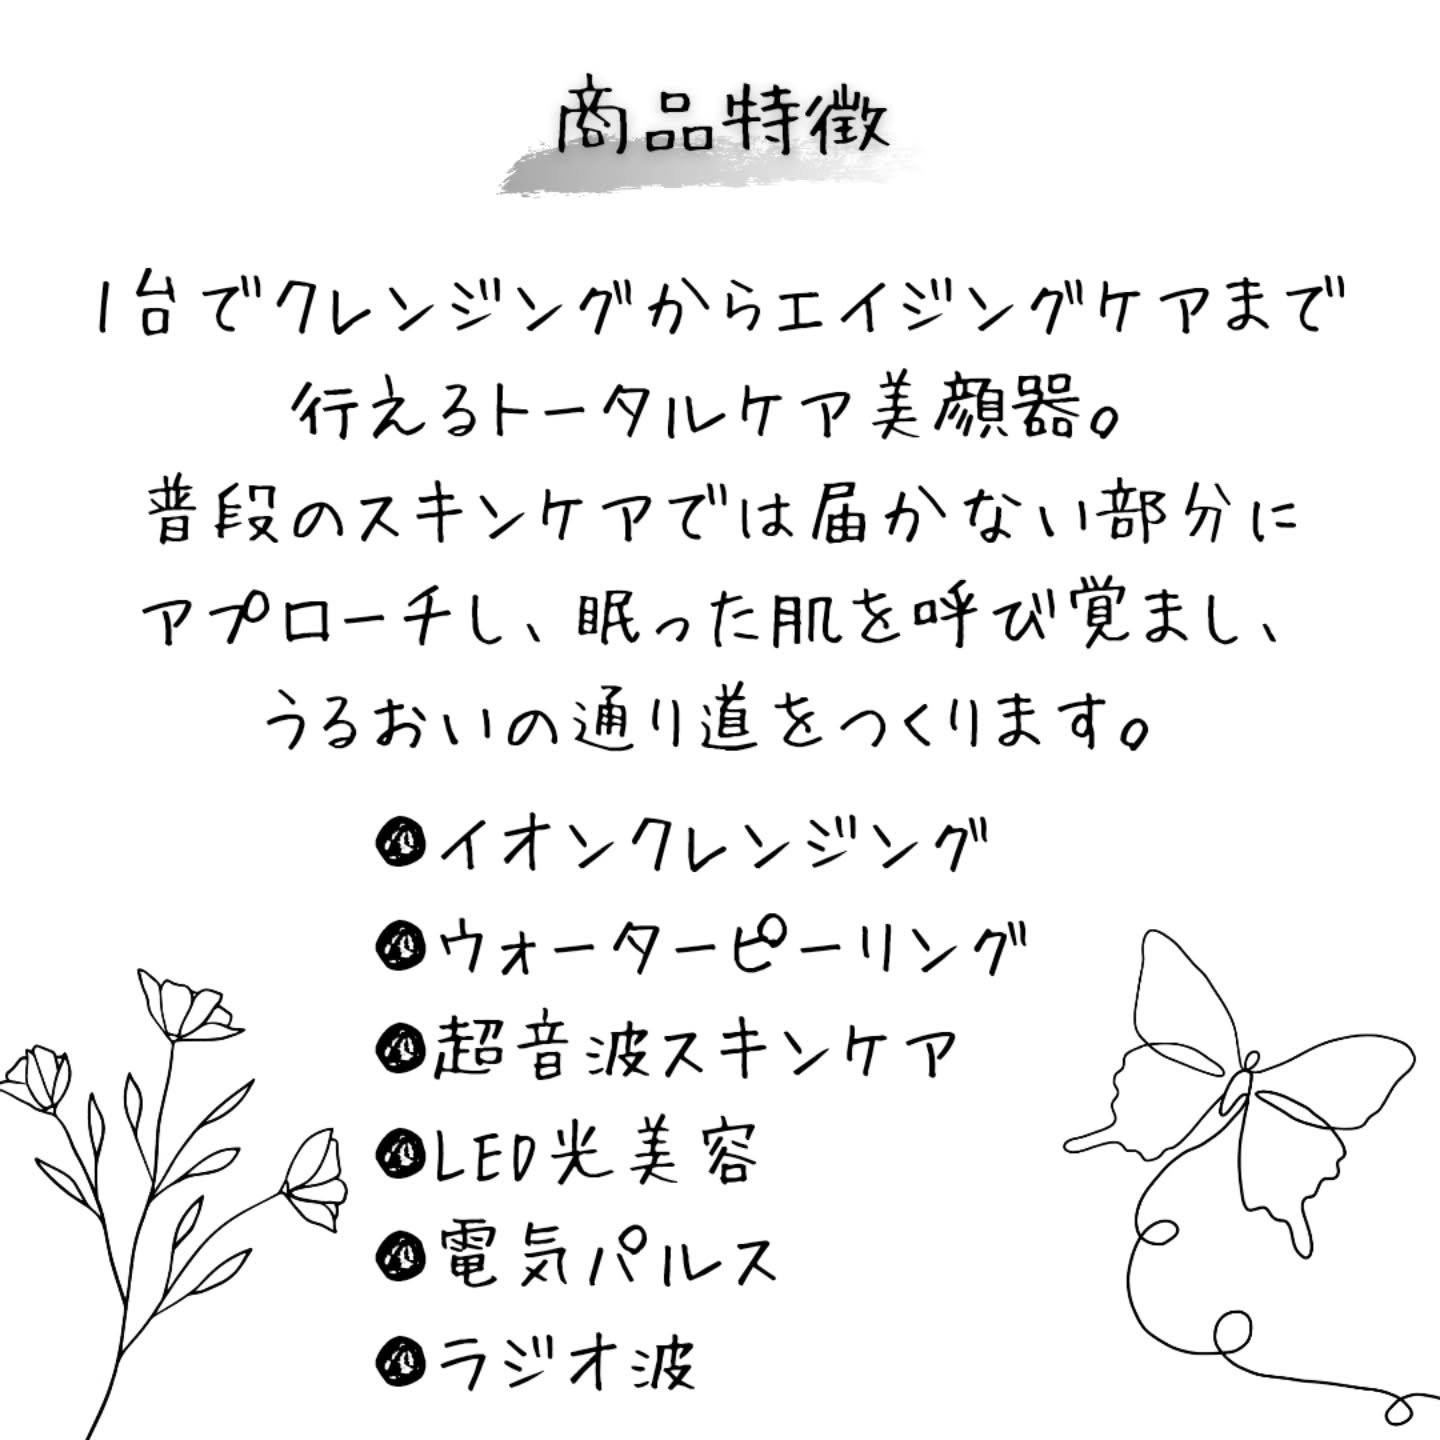 商品特徴
1台でクレンジングからエイジングケアまで
行えるトータルケア美顔器。
普段のスキンケアでは届かない部分に
アプローチし、眠った肌を呼び覚まし、
うるおいの通り道をつくります。
●イオンクレンジング
●ウォーターピーリング
●超音波スキンケア
●LED光美容
●電気パルス
●ラジオ波